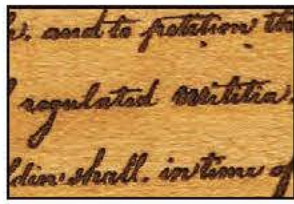 h, and to petition th
l regulated militia.
ldier shall. in time of